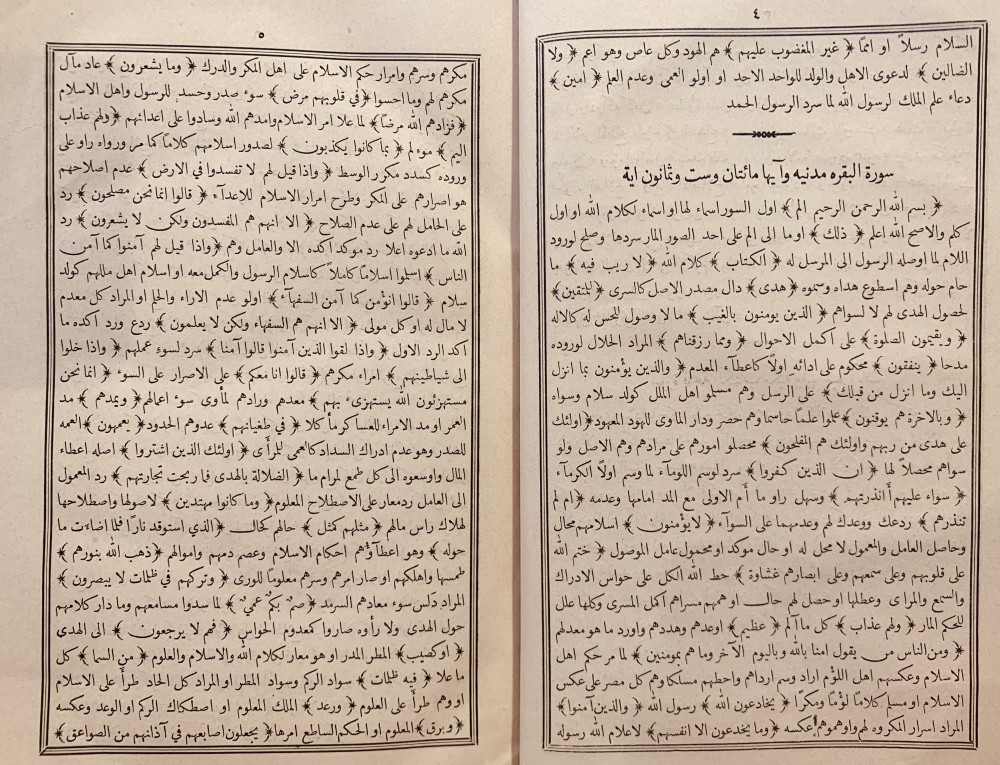 ٤
السلام رسلاً او امماً ﴿ غير المغضوب عليهم ﴾ هم الهود وكل عاص وهو اعم ﴿ ولا
الضالين ﴾ لدعوى الاهل والولد للواحد الاحد او اولو العمى وعدم العلم ﴿ امين ﴾
دعاء علم الملك لرسول الله لما سرد الرسول الحمد
سورة البقره مدنيه وآيها مائتان وست وثمانون اية
﴿ بسم الله الرحمن الرحيم الم ﴾ اول السور اسماء لها او اسماء لكلام الله او اول
كلم والاصح الله اعلم ﴿ ذلك ﴾ اوما الى الم على احد الصور المار سردها وصلح لورود
اللام لما اوصله الرسول الى المرسل له ﴿ الكتاب ﴾ كلام الله ﴿ لا ريب فيه ﴾ ما
حام حوله وهم اسطوع هداه وسموه ﴿ هدى ﴾ دال مصدر الاصل كالسرى ﴿ للمتقين ﴾
لحصول الهدى لهم لا لسواهم ﴿ الذين يومنون بالغيب ﴾ ما لا وصول للحس له كالاله
﴿ ويقيمون الصلوة ﴾ على اكمل الاحوال ﴿ ومما رزقناهم ﴾ المراد الحلال لوروده
مدحا ﴿ ينفقون ﴾ محكوم على ادائه اولاً كاعطآء المعدم ﴿ والذين يؤمنون بما انزل
اليك وما انزل من قبلك ﴾ على الرسل وهم مسلمو اهل الملل كولد سلام وسواء
﴿ وبالاخرة هم يوقنون ﴾ علموا علماً حاسما وهم حصر ودار الماوى للهود المعهود ﴿ اولئك
على هدى من ربهم واولئك هم المفلحون ﴾ محصلو امورهم على مرادهم وهم الاصل ولو
سواهم محصلاً لها ﴿ ان الذين كفروا ﴾ سرد لوسم اللومآء لما وسم اولاً الكرمآء
﴿ سواء عليهم أانذرتهم ﴾ وسهل راو ما أم الاولى مع المد امامها وعدمه ﴿ ام لم
تنذرهم ﴾ ردعك ووعدك لهم وعدمهما على السوآء ﴿ لا يؤمنون ﴾ اسلامهم محال
وحاصل العامل والمعمول لا محل له او حال موكد او محمول عامل الموصول ﴿ ختم الله
على قلوبهم وعلى سمعهم وعلى ابصارهم غشاوة ﴾ حط الله الكل على حواس الادراك
والسمع والمراى وعطلها او حصل لهم حال او همهم مسراهم اكمل المسرى وكلها علل
للحكم المار ﴿ ولهم عذاب ﴾ كل ما آلم ﴿ عظيم ﴾ اوعدهم وهددهم واورد ما هو معدلهم
﴿ ومن الناس من يقول امنا بالله وباليوم الآخر وما هم بمومنين ﴾ لما مر حكم اهل
الاسلام وعكسهم اهل اللؤم اراد وسم ارداهم واحطهم مسلكا وهم كل مصر على عكس
الاسلام او مسلم كلامًا لؤمًا ومكراً ﴿ يخادعون الله ﴾ رسول الله ﴿ والذين آمنوا ﴾
المراد اسرار المكروه لهم واوهموهم عكسه ﴿ وما يخدعون الا انفسهم ﴾ لاعلام الله رسوله
٥
مكرهم وسرهم وامرار حكم الاسلام على اهل المكر والدرك ﴿ وما يشعرون ﴾ عاد مآل
مكرهم لهم وما احسوا ﴿ في قلوبهم مرض ﴾ سوء صدر وحسد للرسول واهل الاسلام
﴿ فزادهم الله مرضاً ﴾ لما علا امر الاسلام وامدهم الله وسادوا على اعدائهم ﴿ ولهم عذاب
اليم ﴾ موء لم ﴿ بما كانوا يكذبون ﴾ لصدور اسلامهم كلامًا كما مر ورواه راو على
وروده كسدد مكرر الوسط ﴿ واذا قيل لهم لا تفسدوا في الارض ﴾ عدم اصلاحهم
هو اصرارهم على المكر وطرح امرار الاسلام للاعدآء ﴿ قالوا انما نحن مصلحون ﴾ رد
على الحامل لهم على عدم الصلاح ﴿ الا انهم هم المفسدون ولكن لا يشعرون ﴾ رد
الله ما ادعوه اعلا رد موكد آكده الا والعامل وهم ﴿ واذا قيل لهم آمنوا كما آمن
الناس ﴾ اسلموا اسلامًا كاملاً كاسلام الرسول والكمل معه او اسلام اهل مللهم كولد
سلام ﴿ قالوا انؤمن كما آمن السفهآء ﴾ اولو عدم الاراء والحلم او المراد كل معدم
لا مال له او كل مولى ﴿ الا انهم هم السفهاء ولكن لا يعلمون ﴾ ردع ورد اكده ما
اكد الرد الاول ﴿ واذا لقوا الذين آمنوا قالوا آمنا ﴾ سرد لسوء عملهم ﴿ واذا خلوا
الى شياطينهم ﴾ امراء مكرهم ﴿ قالوا انا معكم ﴾ على الاصرار على السوء ﴿ انما نحن
مستهزئون الله يستهزىء بهم ﴾ معدهم ورادهم لمأوى سوء اعمالهم ﴿ ويمدهم ﴾ مد
العمر او مد الامراء للعساكر مأكلا ﴿ في طغيانهم ﴾ عدوهم الحدود ﴿ يعمهون ﴾ العمه
للصدر وهو عدم ادراك السداد كالعمى للمرأى ﴿ اولئك الذين اشتروا ﴾ اصله اعطاء
المال واوسعوه الى كل طمع لمرام ما ﴿ الضلالة بالهدى فما ربحت تجارتهم ﴾ رد المعمول
الى العامل ردمعار على الاصطلاح المعلوم ﴿ وما كانوا مهتدين ﴾ لاصولها واصطلاحها
لهلاك راس مالهم ﴿ مثلهم كمثل ﴾ حالهم كحال ﴿ الذي استوقد نارًا فلما اضاءت ما
حوله ﴾ وهو اعطآؤهم احكام الاسلام وعصم دمهم واموالهم ﴿ ذهب الله بنورهم ﴾
طمسها واهلكهم او صار امرهم وسرهم معلومًا للورى ﴿ وتركهم في ظلمات لا يبصرون ﴾
المراد دلس سوء معادهم السرمد ﴿ صمٌ بكمٌ عميٌ ﴾ لما سدوا مسامعهم وما دار كلامهم
حول الهدى ولا رأوه صاروا كمعدوم الحواس ﴿ فهم لا يرجعون ﴾ الى الهدى
﴿ او كصيب ﴾ المطر المدر او هو معار لكلام الله والاسلام والعلوم ﴿ من السما ﴾ كل
ما علا ﴿ فيه ظلمات ﴾ سواد الركم وسواد المطر او المراد كل الحاد طرأ على الاسلام
او وهم طرأ على العلوم ﴿ ورعد ﴾ الملك المعلوم او اصطكاك الركم او الوعد وعكسه
﴿ وبرق ﴾ المعلوم او الحكم الساطع امرها ﴿ يجعلون اصابعهم في آذانهم من الصواعق ﴾